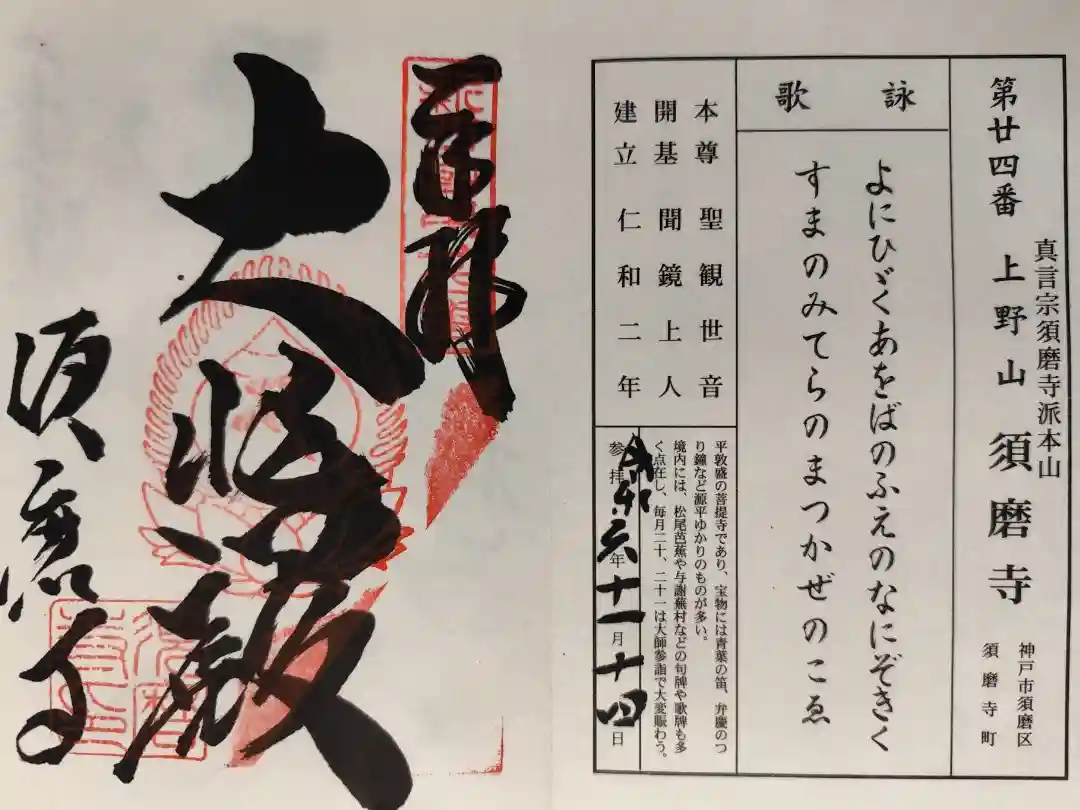 真言宗須磨寺派本山
第廿四番 上野山 須磨寺
神戸市須磨区
須磨寺町
詠歌
よにひゞくあをばのふえのなにぞきく
すまのみてらのまつかぜのこゑ
本尊 聖観世音
開基 聞鏡上人
建立 仁和二年
平敦盛の菩提寺であり、宝物には青葉の笛、弁慶のつ
り鐘など源平ゆかりのものが多い。
境内には、松尾芭蕉や与謝蕪村などの句碑や歌碑も多
く点在し、毎月二十、二十一は大師参詣で大変賑わう。
参拝 令和六年十一月十四日
奉拝
大悲殿
須磨寺